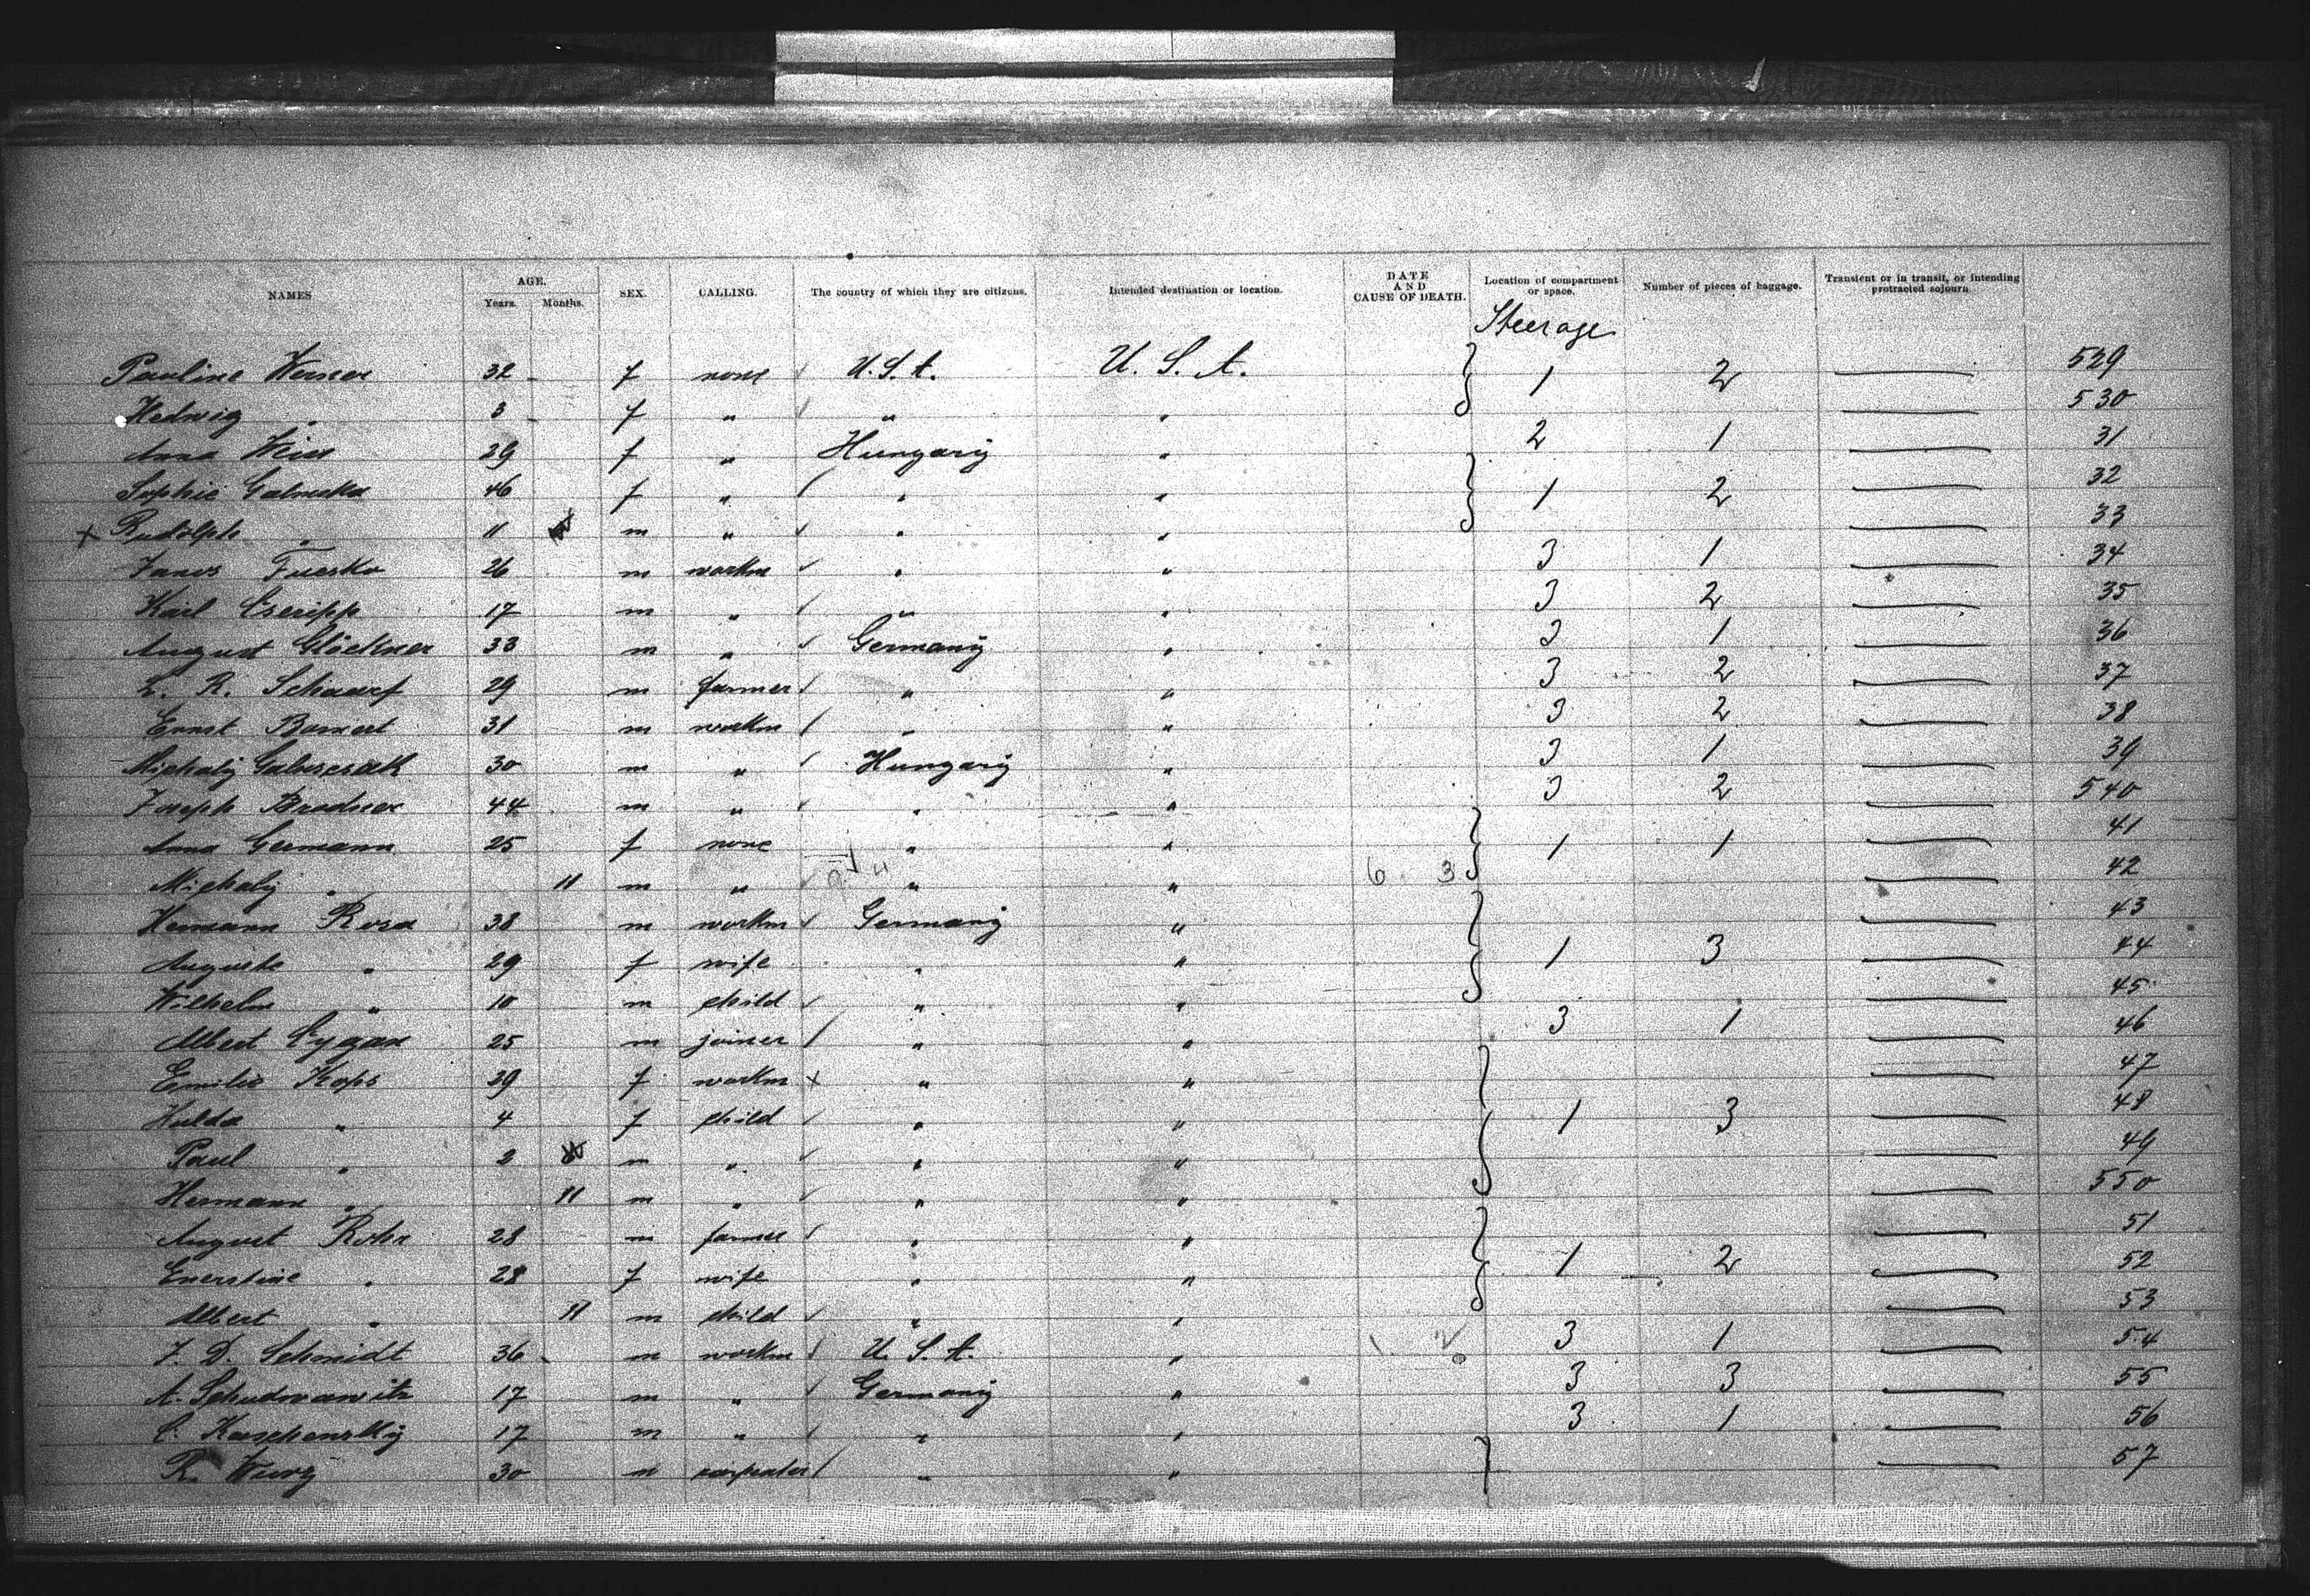 NAMES AGE. Years. Months. SEX. CALLING. The country of which they are citizens. Intended destination or location. DATE AND CAUSE OF DEATH. Location of compartment or space. Number of pieces of baggage. Transient or in transit, or intending protracted sojourn
Steerage
Pauline Werner 32 f none U.S.A. U.S.A. 1 2 529
Hedwig " 3 f " " " 530
Anna 29 f " Hungary " 2 1 31
Sophie 46 f " " " 1 2 32
x Rudolph " 11 m " " " 33
Janos 26 m workm " " 3 1 34
Karl 17 m " " " 3 2 35
August Glöckner 33 m " Germany " 3 1 36
R. Schaarf 29 m farmer " " 3 2 37
Ernst 31 m workm " " 3 2 38
Michaly 30 m " Hungary " 3 1 39
Joseph 44 m " " " 3 2 540
Anna Germann 25 f none " " 1 1 41
Michaly " 11 m " " " 6 3 42
Hermann Rosa 38 m workm Germany " 43
Auguste " 29 f wife " " 1 3 44
Wilhelm " 10 m child " " 45
Albert Cygan 25 m joiner " " 3 1 46
Emilie Kops 29 f workm x " " 47
Hulda " 4 f child " " 1 3 48
Paul " 2 m " " " 49
Hermann " 11 m " " " 550
August Rohr 28 m farmer " " 51
Enerstine " 28 f wife " " 1 2 52
Albert " 11 m child " " 53
J. D. Schmidt 36 m workm U.S.A. " 3 1 54
A. 17 m " Germany " 3 3 55
C. 17 m " " " 3 1 56
R. 30 m carpenter " " 57